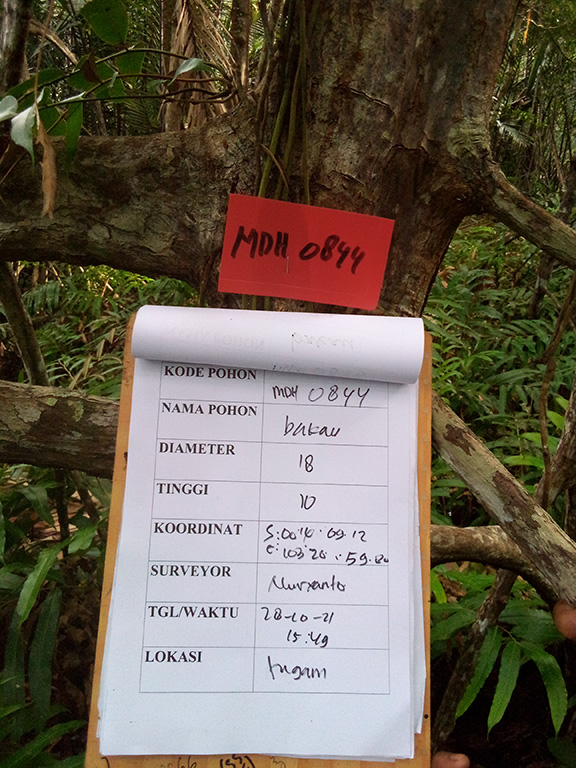 MDH 0844
KODE POHON MDH 0844
NAMA POHON bakau
DIAMETER 18
TINGGI 10
KOORDINAT S:00
E:103
SURVEYOR
TGL/WAKTU 28-10-21
15:49
LOKASI